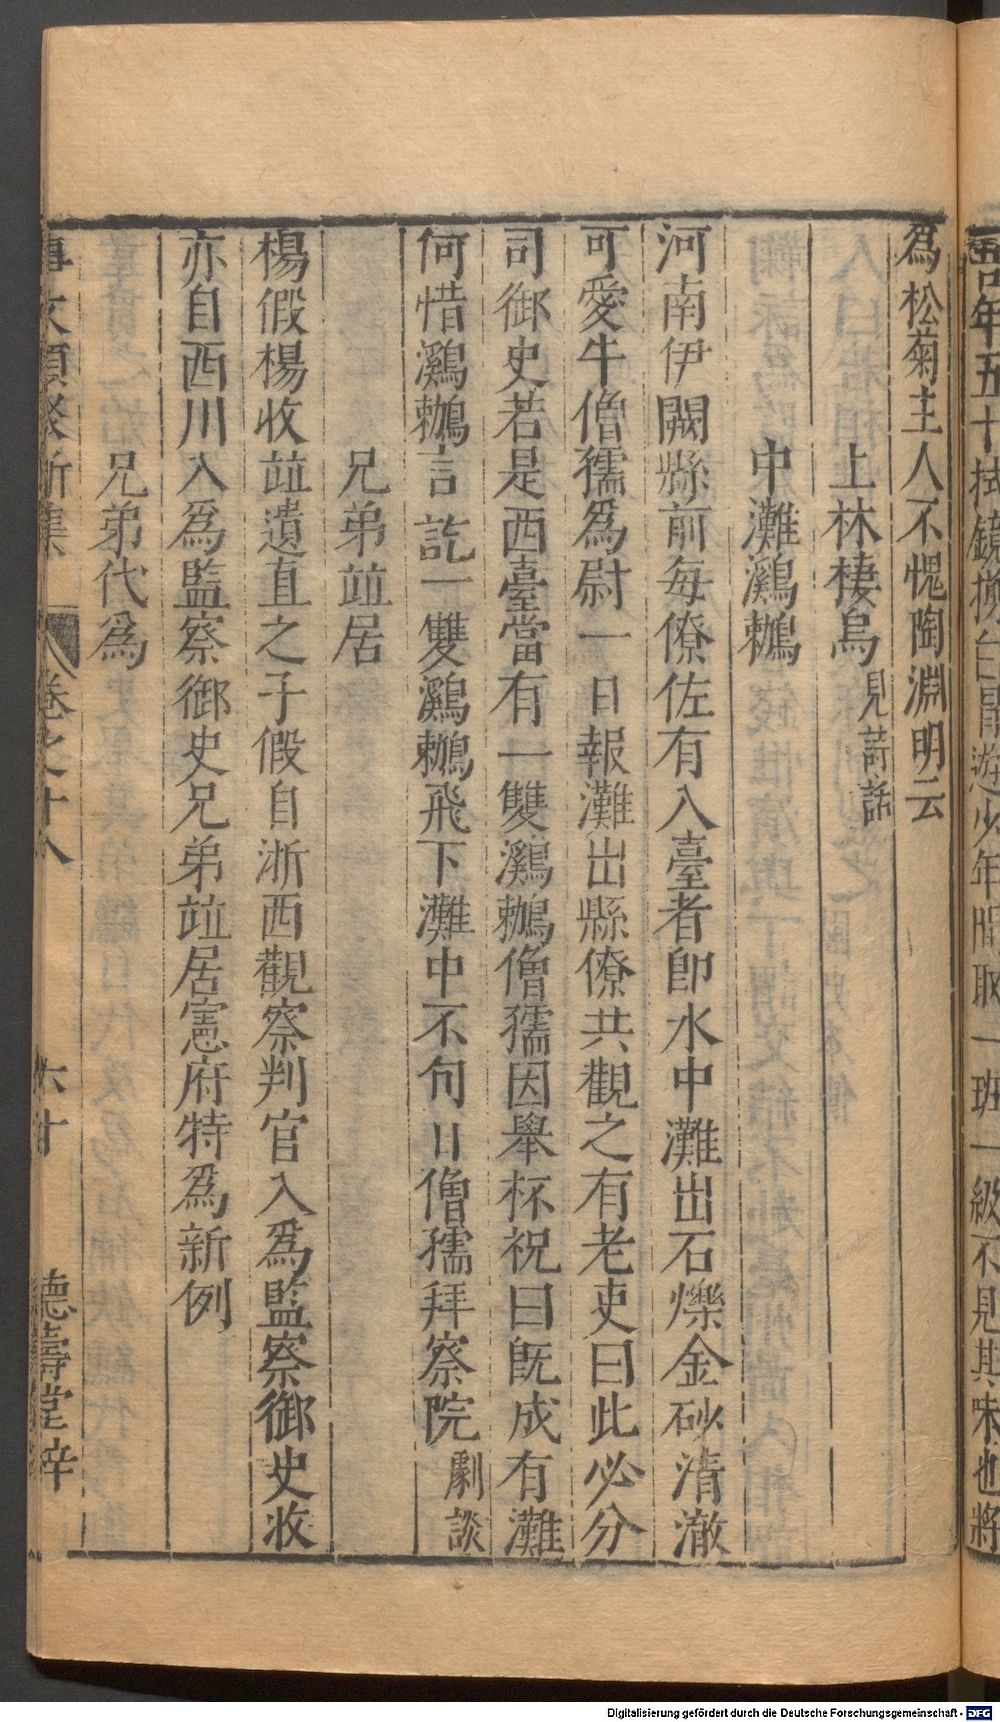 年五十拭鏡
少年
取一班一級不見其味也將
爲松菊主人不愧陶淵明云
上林棲烏見詩話
中灘鸂鶒
河南伊闕縣前每僚佐有入臺者卽水中灘出石爍金砂清澈
可愛牛僧孺爲尉一日報灘出縣僚共觀之有老吏曰此必分
司御史若是西臺當有一雙鸂鶒僧孺因舉杯祝曰旣成有灘
何惜鸂鶒言訖一雙鸂鶒飛下灘中不旬日僧孺拜察院劇談
兄弟竝居
楊假楊收竝遺直之子假自淅西觀察判官入爲監察御史收
亦自西川入爲監察御史兄弟竝居憲府特爲新例
兄弟代爲
事文類聚新集 卷之十八 六十 德壽堂梓
Digitalisierung gefördert durch die Deutsche Forschungsgemeinschaft - DFG